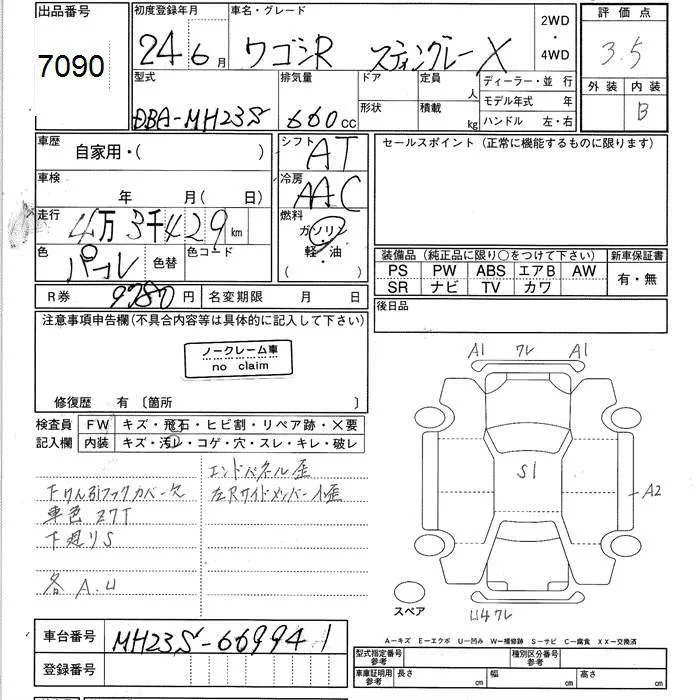 出品番号
7090
初度登録年月
24 6月
車名・グレード
ワゴンR スティングレー X
2WD
・
4WD
評価点
3.5
外装 内装
B
型式
DBA-MH23S
排気量
660cc
ドア
形状
定員
人
積載
kg
ディーラー・並 行
モデル年式 年
ハンドル 左・右
車歴
自家用・( )
車検
年 月( 日)
走行
4万3千429km
色
パール
色替
色コード
シフト
AT
冷房
AAC
燃料
ガソリン
軽・油
( )
セールスポイント (正常に機能するものに限ります)
装備品 (純正品に限り○をつけて下さい)
PS PW ABS エアB AW
SR ナビ TV カワ
新車保証書
有・無
R券 9280円
名変期限 月 日
後日品
注意事項申告欄(不具合内容等は具体的に記入して下さい)
ノークレーム車
no claim
修復歴 有 〔箇所 〕
検査員
記入欄
FW キズ・飛石・ヒビ割・リペア跡・×要
内装 キズ・汚レ・コゲ・穴・スレ・キレ・破レ
エンドパネル歪
下けん引フックカバー欠
左Rサイドメンバー小歪
車色 Z7T
下廻りS
各 A.U
A1 ワレ A1
S1
A2
U4ワレ
スペア
車台番号
MH23S-669941
登録番号
A-キズ E-エクボ U-凹み W-補修跡 S-サビ C-腐食 XX-交換済
型式指定番号
参考
種別区分番号
参考
車庫証明用
参考
長さ cm
幅 cm
高さ cm